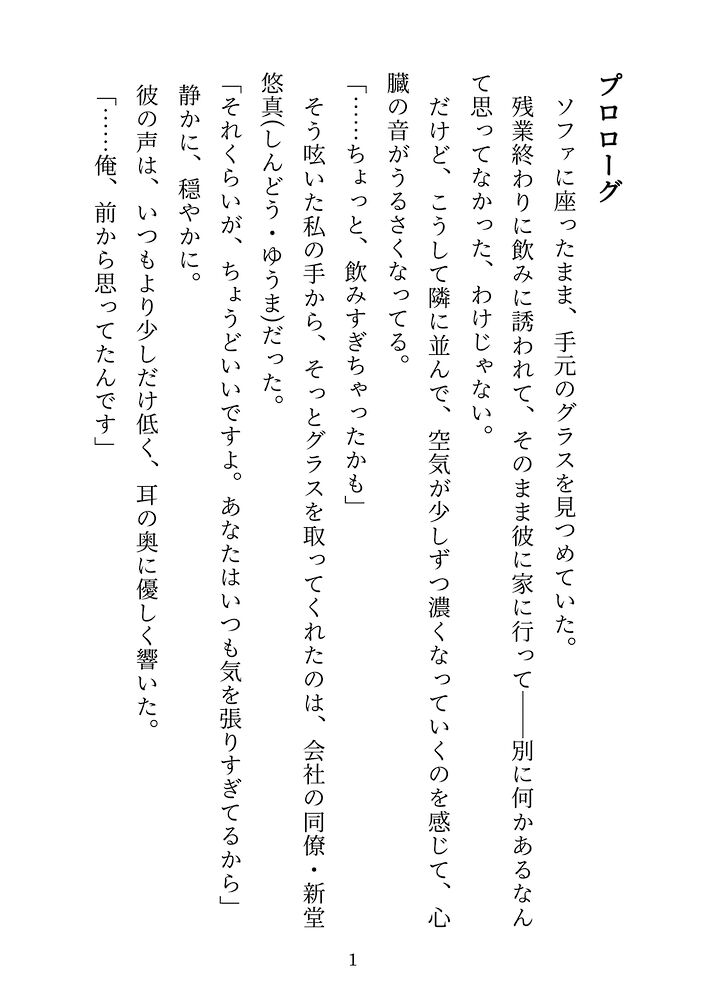 プロローグ
ソファに座ったまま、手元のグラスを見つめていた。
残業終わりに飲みに誘われて、そのまま彼に家に行って――別に何かあるなん
て思ってなかった、わけじゃない。
だけど、こうして隣に並んで、空気が少しずつ濃くなっていくのを感じて、心
臓の音がうるさくなってる。
「……ちょっと、飲みすぎちゃったかも」
そう呟いた私の手から、そっとグラスを取ってくれたのは、会社の同僚・新堂
悠真(しんどう・ゆうま)だった。
「それくらいが、ちょうどいいですよ。あなたはいつも気を張りすぎてるから」
静かに、穏やかに。
彼の声は、いつもより少しだけ低く、耳の奥に優しく響いた。
「……俺、前から思ってたんです」
1